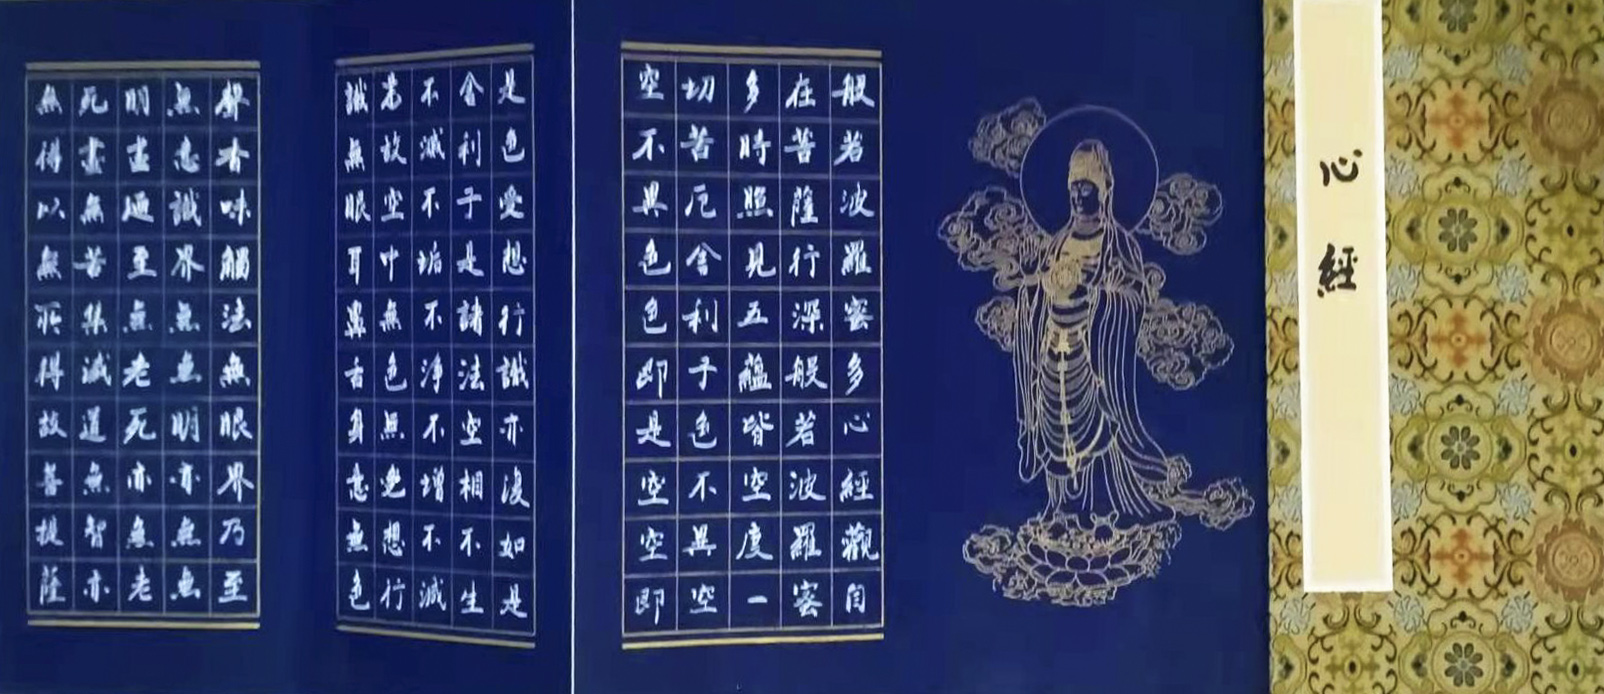 心經
般若波羅蜜多心經觀自
在菩薩行深般若波羅蜜
多時照見五蘊皆空度一
切苦厄舍利子色不異空
空不異色色即是空空即
是色受想行識亦復如是
舍利子是諸法空相不生
不滅不垢不淨不增不減
是故空中無色無受想行
識無眼耳鼻舌身意無色
聲香味觸法無眼界乃至
無意識界無無明亦無無
明盡廼至無老死亦無老
死盡無苦集滅道無智亦
無得以無所得故菩提薩